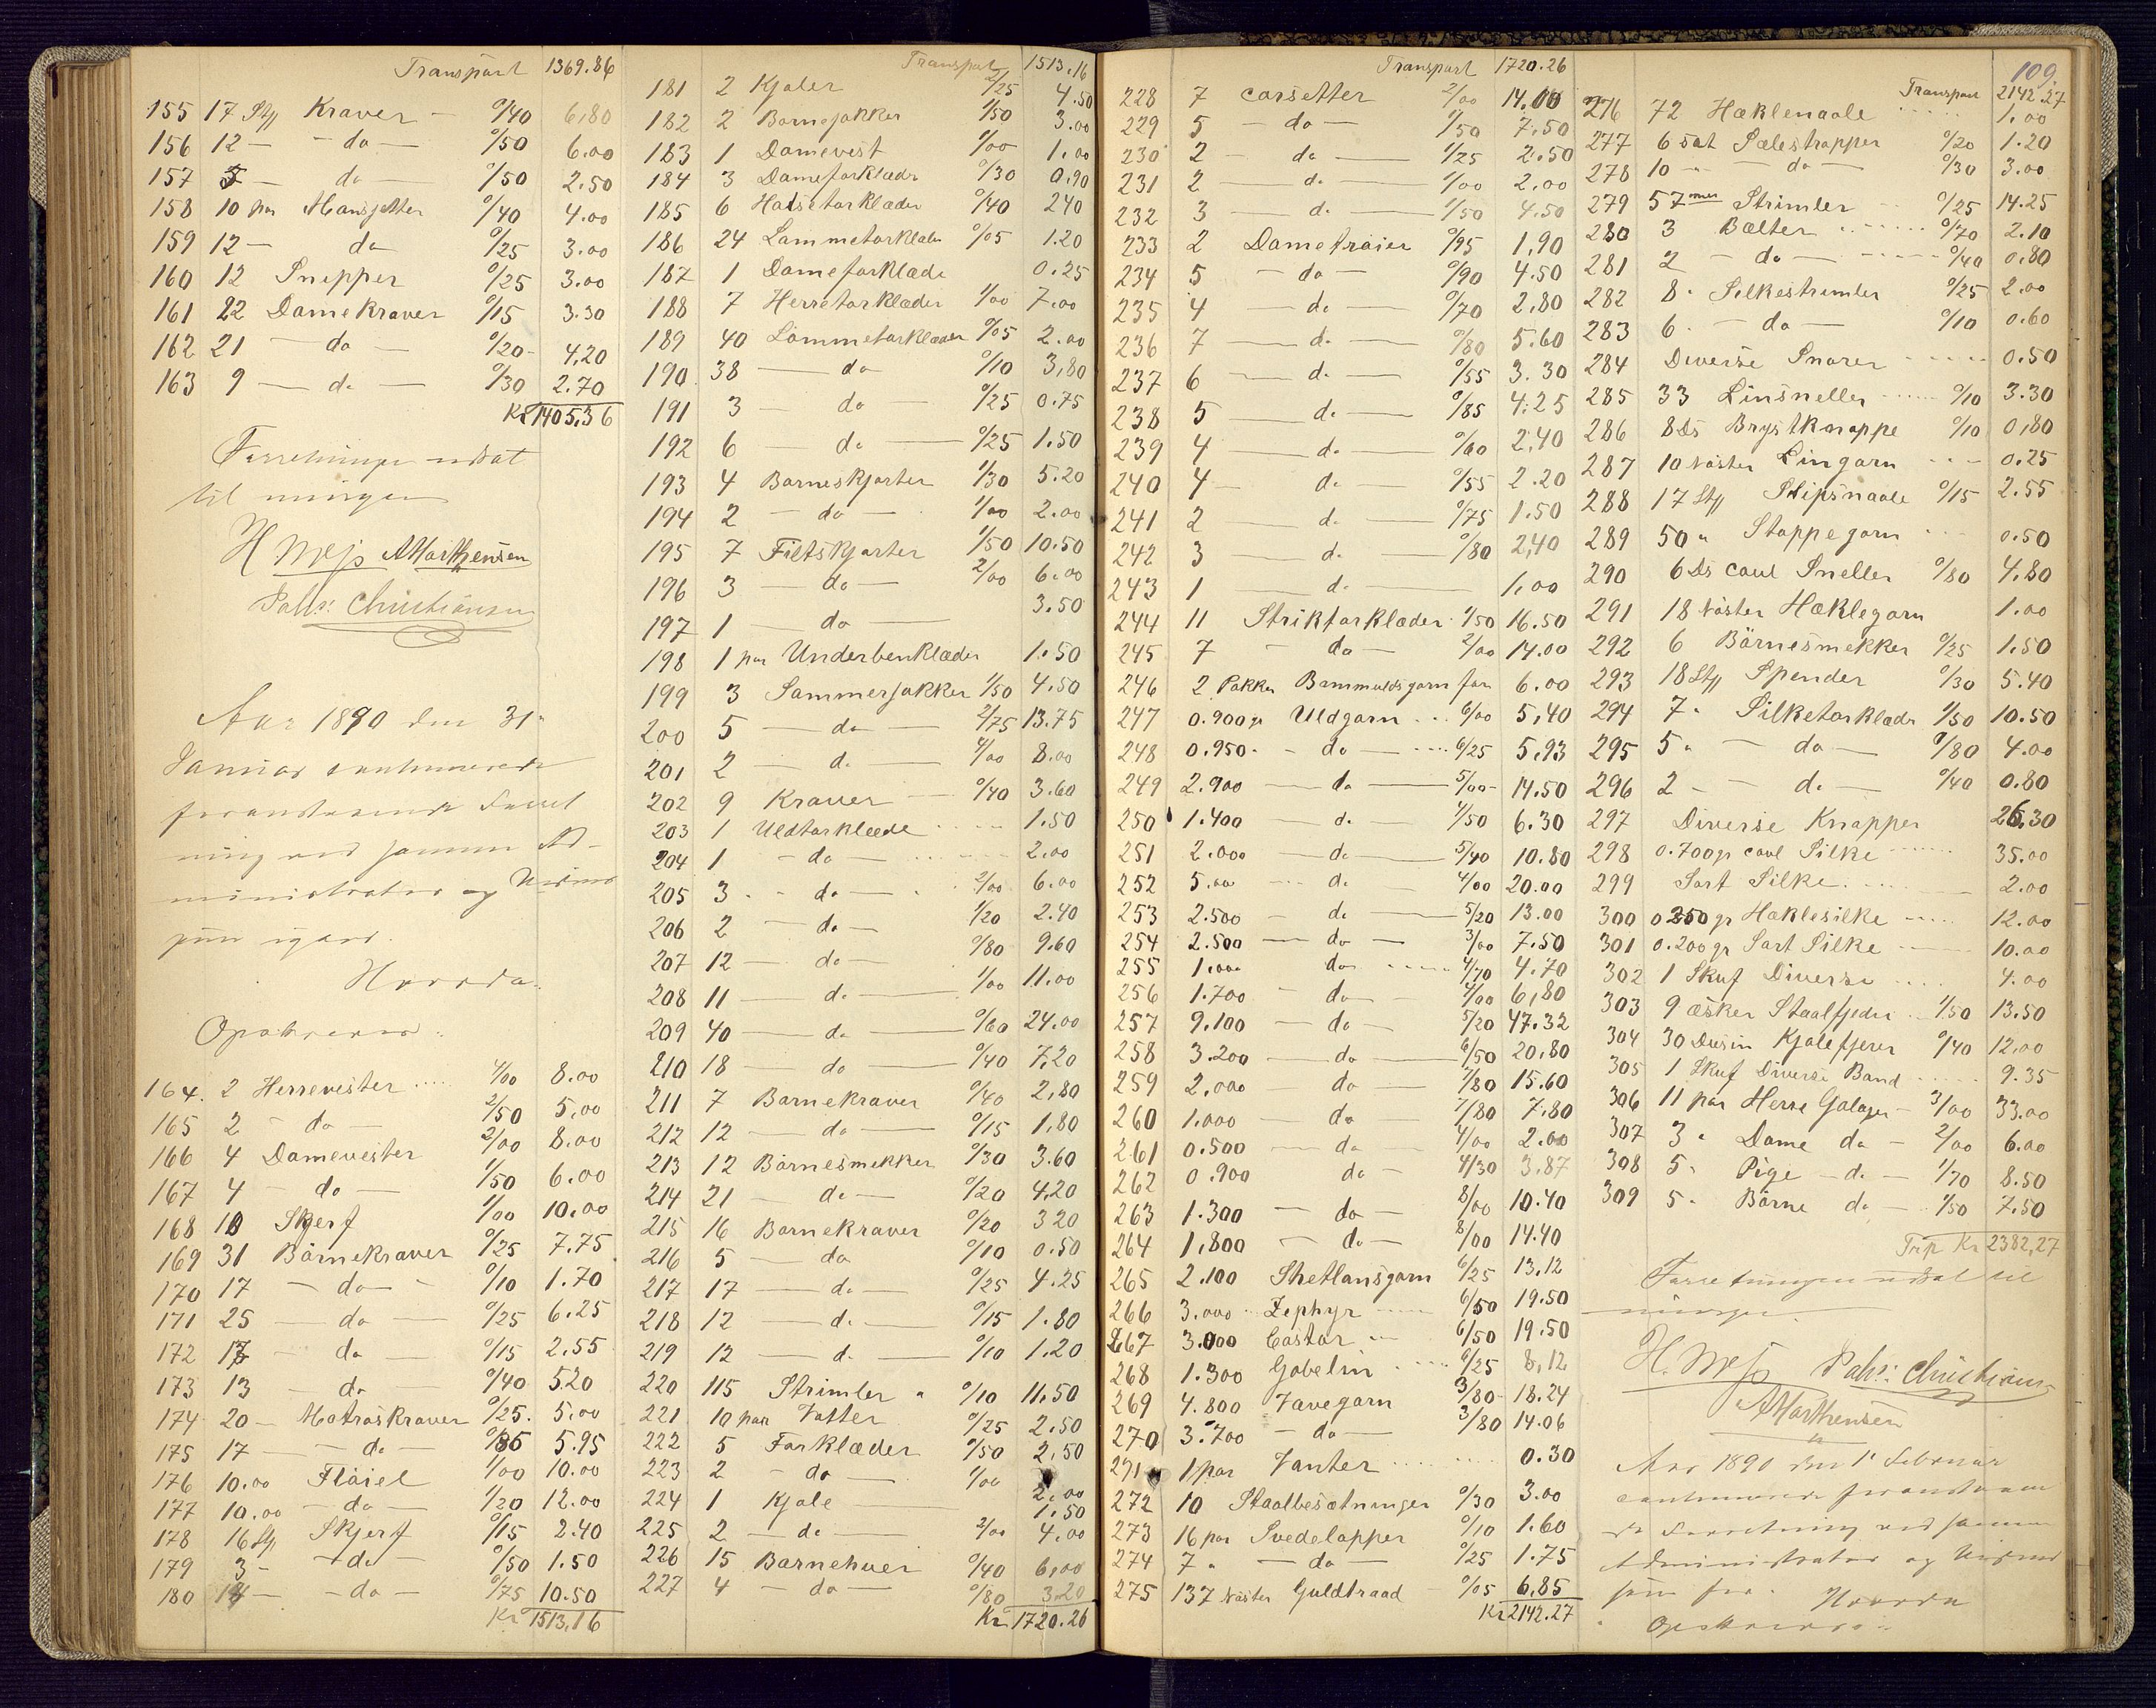 Transport 1369.86
155 17 Stk Kraver - 0/40 6,80
156 12 — - do — 0/50 6.00
157 5 — do — 0/50 2.50
158 10 par Mansjetter 0/40 4.00
159 12 — do 0/25 3.00
160 12 Snipper 0/25 3.00
161 22 Damekraver 0/15 3.30
162 21 — do — 0/20 4,20
163 9 — do — 0/30 2.70
Kr 1405,36
Forretningen udsat
til imorgen
H. Mejs AMarthensen
Pahr: Christiansen
Aar 1890 den 31te
Januar continuerede
foranstaaende Forret
ning ved samme Ad-
ministrator og Vidner
som igaar.
Hvorda
Opskreves:
164. 2 Herrevester .... 4/00 8.00
165 2 - do — 2/50 5,00
166 4 Damevester 2/00 8.00
167 4 — do — 1/50 6.00
168 10 Skjerf 1/00 10.00
169 31 Börnekraver 0/25 7.75
170 17 — do - 0/10 1.70
171 25 — do — 0/25 6.25
172 17 — do — 0/15 2,55
173 13 — do — 0/40 5.20
174 20 — Matroskraver 0/25. 5.00
175 17 — - do — 0/35 5.95
176 10.00 Flöiel 1/00 10.00
177 10.00 — do — 1/20 12.00
178 16 Stk Skjerf 0/15 2.40
179 3 - — do — 0/50 1.50
180 14 — - do — 0/75 10.50
Kr 1513,16
Transport 1513.16
181 2 Kjoler 2/25 4.50
182 2 Barnejakker 1/50 3.00
183 1 Damevest 1/00 1,00
184 3 Dameforklæder 0/30 0,90
185 6 Halstörklæder 0/40 240
186 24 Lommetörklæder 0/05 1.20
187 1 Dameforklæde 0.25
188 7 Herretörklæder 1/00 7.00
189 40 Lommetörklæder 0/05 2.00
190 38 — do 0/10 3,80
191 3 — do — 0/25 0.75
192 6 — do — 0/25 1.50
193 4 Barneskjorter 1/30 5.20
194 2 — do — 1/00 2.00
195 7 Filtskjorter 1/50 10.50
196 3 — do — 2/00 6.00
197 1 — do — 3.50
198 1 par Underbenklæder 1.50
199 3 Sommerjakker 1/50 4.50
200 5 — do — 2/75 13.75
201 2 — do — 4/00 8.00
202 9 Kraver — 0/40 3.60
203 1 Uldtörklæde .... 1.50
204 1 - do — .... 2.00
205 3 . - do — . 2/00 6.00
206 2 — do — 1/20 2.40
207 12 — do — 0/80 9.60
208 11 — do — 1/00 11.00
209 40 — do — 0/60 24.00
210 18 — do — 0/40 7.20
211 7 Barnekraver 0/40 2,80
212 12 — do — 0/15 1,80
213 12 Börnesmekker 0/30 3.60
214 21 — do — 0/20 4,20
215 16 Barnekraver 0/20 320
216 5 — do 0/10 0.50
217 17 — do — 0/25 4.25
218 12 — do — 0/15 1.80
219 12 — do — 0/10 1.20
220 115 Strimler " 0/10 11.50
221 10 par Votter 0/25 2.50
222 5 Forklæder 0/50 2,50
223 2 — do — 1/00 2.00
224 1 Kjole — 1.50
225 2 — do — 2/00 4.00
226 15 Barnehuer 0/40 6,00
227 4 — do — 0/80 3.20
Kr 1720.26
Transport 1720.26
228 7 corsetter 2/00 14,00
229 5 — do — 1/50 7.50
230 2 — do — 1/25 2.50
231 2 — do — 1/00 2.00
232 3 — do — 1/50 4.50
233 2 Dametröier 0/95 1,90
234 5 — do — 0/90 4.50
235 4 — do — 0/70 2,80
236 7 — do — 0/80 5.60
237 6 — do — 0/55 3.30
238 5 — do — 0/85 4.25
239 4 — do — 0/60 2,40
240 4 — do — 0/55 2.20
241 2 — do — 0/75 1.50
242 3 — do — 0/80 2,40
243 1 — do — 1,00
244 11 Striktörklæder 1/50 16.50
245 7 — do — 2/00 14.00
246 2 Pakker Bommuldsgarn for 6.00
247 0.900 gr Uldgarn ... 6/00 5,40
248 0.950 - - do — .... 6/25 5,93
249 2.900 — do — 5/00 14.50
250 1.400 — do — 4/50 6.30
251 2.000 — do — 5/40 10.80
252 5.00 --- do — 4/00 20.00
253 2.500 — do — 5/20 13.00
254 2.500 — do — 3/00 7.50
255 1.000 do .... 4/70 4.70
256 1.700 — do — 4/00 6,80
257 9.100 — do — 5/20 47.32
258 3.200 — do — 6/50 20,80
259 2,000 do — 7/80 15.60
260 1.000 — do — 7/80 7.80
261 0.500 — do — 4/00 2.00
262 0.900 do — 4/30 3.87
263 1.300 — do — 8/00 10.40
264 1,800 — do — 8/00 14.40
265 2.100 Shetlansgarn 6/25 13,12
266 3.000 Zephyr — 6/50 19.50
267 3.000 Castor — 6/50 19.50
268 1.300 Gobelin .... 6/25 8,12
269 4.800 Vævegarn 3/80 18.24
270 3.700 — do — 3/80 14.06
271 1 par Vanter .... 0.30
272 10 Staalbesætninger 0/30 3.00
273 16 par Svedelapper 0/10 1.60
274 7 " — do — 0/25 1.75
275 137 Nöster Guldtraad 0/05 6,85
Kr 2142.27
109.
Transport 2142.27
276 72 Hæklenaale .... 1,00
277 6 sæt Sælestropper 0/20 1.20
278 10 - — do — 0/30 3.00
279 57 mtr Strimler 0/25 14.25
280 3 Bælter ...... 0/70 2.10
281 2 — do — 0/40 0.80
282 8 " Silkestrimler 0/25 2.00
283 6 . — do — 0/10 0.60
284 Diverse Snorer ..... 0.50
285 33 Linsneller ..... 0/10 3.30
286 8 Ds Brystknappe 0/10 0,80
287 10 Nöster Lingarn --- 0.25
288 17 Stk Slipsnaale 0/15 2.55
289 50 " Stoppegarn ... 0.50
290 6 Ds caul Sneller 0/80 4.80
291 18 Nöster Hæklegarn 1.00
292 6 Börnesmekker 0/25 1.50
293 18 Stk Spender 0/30 5.40
294 7 " Silketörklæder 1/50 10.50
295 5 " — do — 0/80 4.00
296 2 - — do — 0/40 0.80
297 Diverse Knapper 26.30
298 0.700 gr caul Silke ...... 35.00
299 Sort Silke ...... 2.00
300 0 250 gr Hæklesilke ..... 12.00
301 0.200 gr Sort Silke — 10.00
302 1 Skuf Diverse .... 4.00
303 9 æsker Staalfjedre .. 1/50 13.50
304 30 Dusin Kjolefjerer 0/40 12,00
305 1 Skuf Diverse Band ..... 9.35
306 11 par Herre Galoger — 3/00 33.00
307 3 " Dame do — 2/00 6.00
308 5 " Pige — do — 1/70 8.50
309 5 " Börne do — 1/50 7.50
Trp Kr 2382,27
Forretningen udsat til
imorgen.
H. Mejs Pahr: Christians
AMarthensen
Aar 1890 den 1te Februar
continuerede foranstaaen
de Forretning ved samme
Administrator og Vidner
som för. Hvorda
Opskreves: